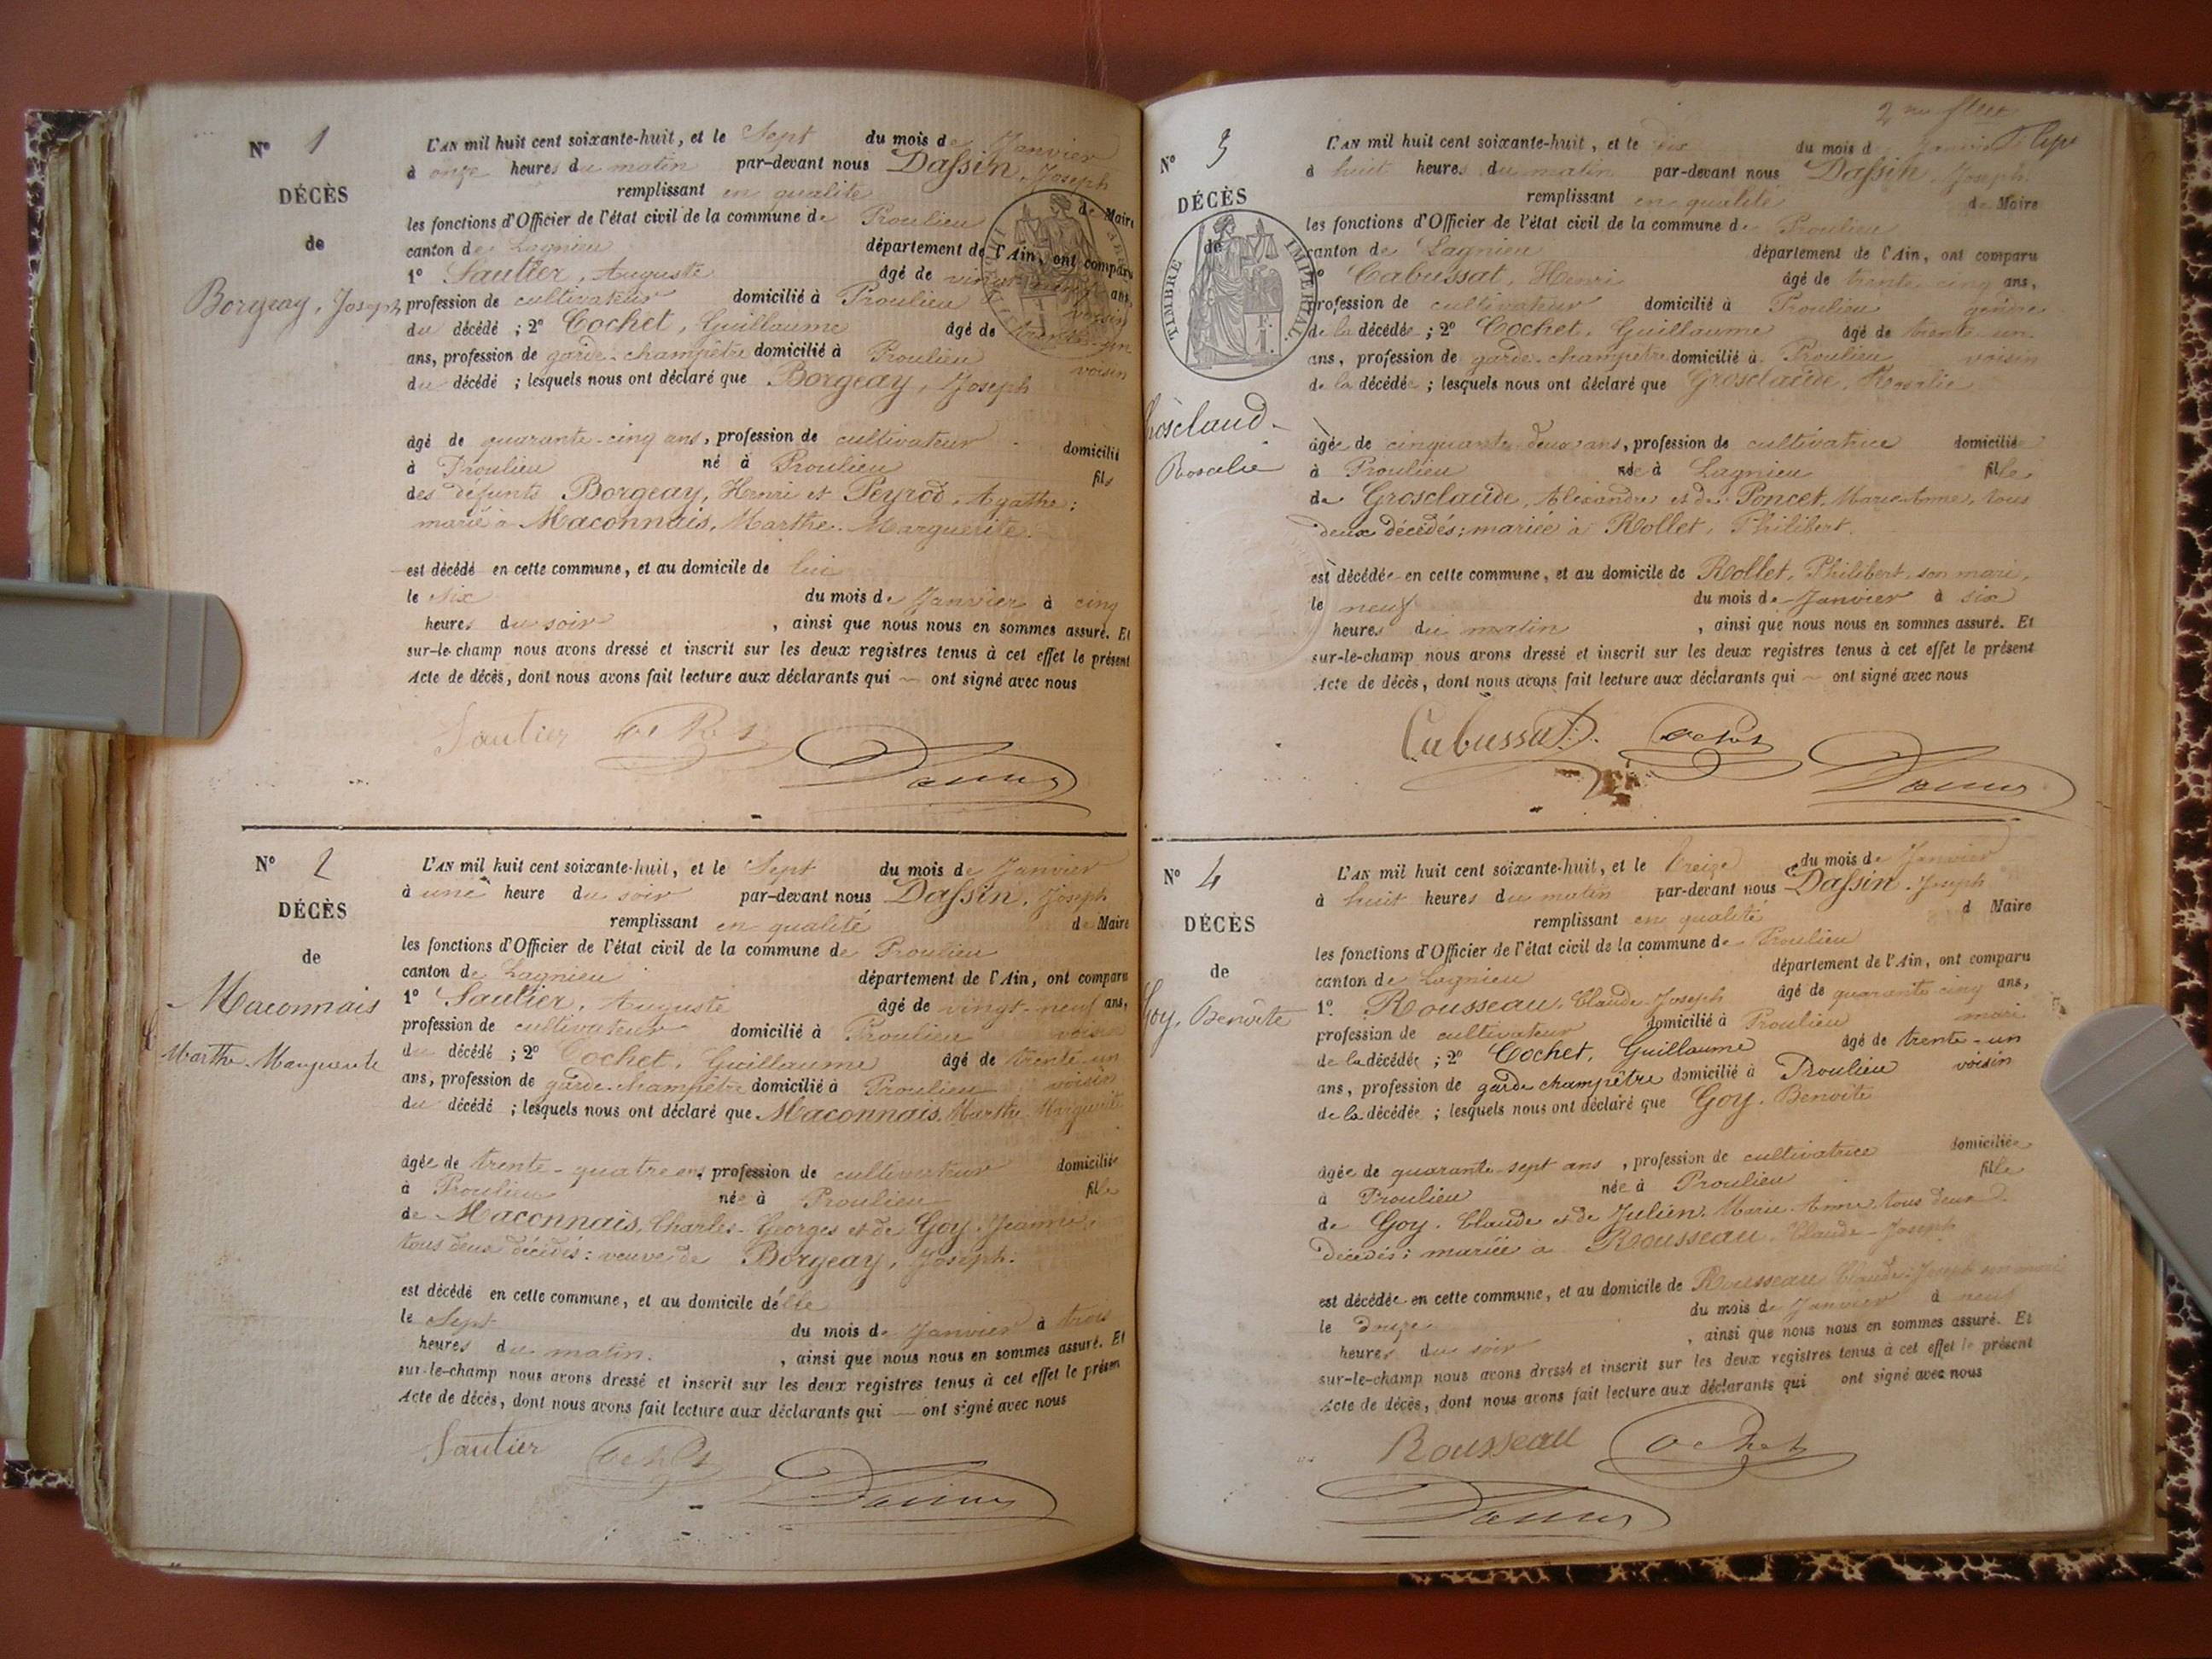 N° 1
DÉCÈS
de
Borgeay, Joseph
L'AN mil huit cent soixante-huit, et le Sept du mois de Janvier
à onze heures du matin par-devant nous Dassin, Joseph
remplissant en qualité de Maire
les fonctions d'Officier de l'état civil de la commune de Proulieu
canton de Lagnieu département de l'Ain, ont comparu
1° Sautier, Auguste âgé de vingt-neuf ans,
profession de cultivateur domicilié à Proulieu voisin
du décédé ; 2° Cochet, Guillaume âgé de trente-un
ans, profession de garde-champêtre domicilié à Proulieu voisin
du décédé ; lesquels nous ont déclaré que Borgeay, Joseph
âgé de quarante-cinq ans, profession de cultivateur domicilié
à Proulieu né à Proulieu fils
des défunts Borgeay, Henri et Peyrod, Agathe ;
marié à Maconnais, Marthe-Marguerite.
est décédé en cette commune, et au domicile de lui
le six du mois de Janvier à cinq
heures du soir , ainsi que nous nous en sommes assuré. Et
sur-le-champ nous avons dressé et inscrit sur les deux registres tenus à cet effet le présent
Acte de décès, dont nous avons fait lecture aux déclarants qui — ont signé avec nous
Sautier Cochet Dassin
N° 2
DÉCÈS
de
Maconnais
Marthe-Marguerite
L'AN mil huit cent soixante-huit, et le Sept du mois de Janvier
à une heure du soir par-devant nous Dassin, Joseph
remplissant en qualité de Maire
les fonctions d'Officier de l'état civil de la commune de Proulieu
canton de Lagnieu département de l'Ain, ont comparu
1° Sautier, Auguste âgé de vingt-neuf ans,
profession de cultivateur domicilié à Proulieu voisin
du décédé ; 2° Cochet, Guillaume âgé de trente-un
ans, profession de garde-champêtre domicilié à Proulieu voisin
du décédé ; lesquels nous ont déclaré que Maconnais, Marthe Marguerite
âgée de trente-quatre ans, profession de cultivateur domiciliée
à Proulieu née à Proulieu fille
de Maconnais, Charles-Georges et de Goy, Jeanne,
tous deux décédés : veuve de Borgeay, Joseph.
est décédé en cette commune, et au domicile d'elle
le Sept du mois de Janvier à trois
heures du matin. , ainsi que nous nous en sommes assuré. Et
sur-le-champ nous avons dressé et inscrit sur les deux registres tenus à cet effet le présent
Acte de décès, dont nous avons fait lecture aux déclarants qui — ont signé avec nous
Sautier Cochet Dassin
N° 3
DÉCÈS
de
TIMBRE IMPÉRIAL
Rosalie
L'AN mil huit cent soixante-huit, et le dix du mois de Janvier
à huit heures du matin par-devant nous Dassin, Joseph
remplissant en qualité de Maire
les fonctions d'Officier de l'état civil de la commune de Proulieu
canton de Lagnieu département de l'Ain, ont comparu
1° Cabussat, Henri âgé de trente cinq ans,
profession de cultivateur domicilié à Proulieu gendre
de la décédée ; 2° Cochet, Guillaume âgé de trente-un
ans, profession de garde-champêtre domicilié à Proulieu voisin
de la décédée ; lesquels nous ont déclaré que Grosclaude, Rosalie
âgée de cinquante-deux ans, profession de cultivatrice domiciliée
à Proulieu née à Lagnieu fille
de Grosclaude, Alexandre et de Poncet, Marie-Anne, tous
deux décédés ; mariée à Rollet, Philibert.
est décédée en cette commune, et au domicile de Rollet, Philibert, son mari,
le neuf du mois de Janvier à six
heures du matin , ainsi que nous nous en sommes assuré. Et
sur-le-champ nous avons dressé et inscrit sur les deux registres tenus à cet effet le présent
Acte de décès, dont nous avons fait lecture aux déclarants qui — ont signé avec nous
Cabussat Cochet Dassin
N° 4
DÉCÈS
de
Goy, Benoîte
L'AN mil huit cent soixante-huit, et le treize du mois de Janvier
à huit heures du matin par-devant nous Dassin, Joseph
remplissant en qualité d Maire
les fonctions d'Officier de l'état civil de la commune de Proulieu
canton de Lagnieu département de l'Ain, ont comparu
1° Rousseau, Claude-Joseph âgé de quarante cinq ans,
profession de cultivateur domicilié à Proulieu mari
de la décédée ; 2° Cochet, Guillaume âgé de trente-un
ans, profession de garde champêtre domicilié à Proulieu voisin
de la décédée ; lesquels nous ont déclaré que Goy, Benoîte
âgée de quarante-sept ans, profession de cultivatrice domiciliée
à Proulieu née à Proulieu fille
de Goy, Claude et de Julien, Marie-Anne tous deux
décédés ; mariée à Rousseau, Claude-Joseph
est décédée en cette commune, et au domicile de Rousseau, Claude-Joseph son mari
le douze du mois de Janvier à neuf
heures du soir , ainsi que nous nous en sommes assuré. Et
sur-le-champ nous avons dressé et inscrit sur les deux registres tenus à cet effet le présent
Acte de décès, dont nous avons fait lecture aux déclarants qui ont signé avec nous
Rousseau Cochet
Dassin